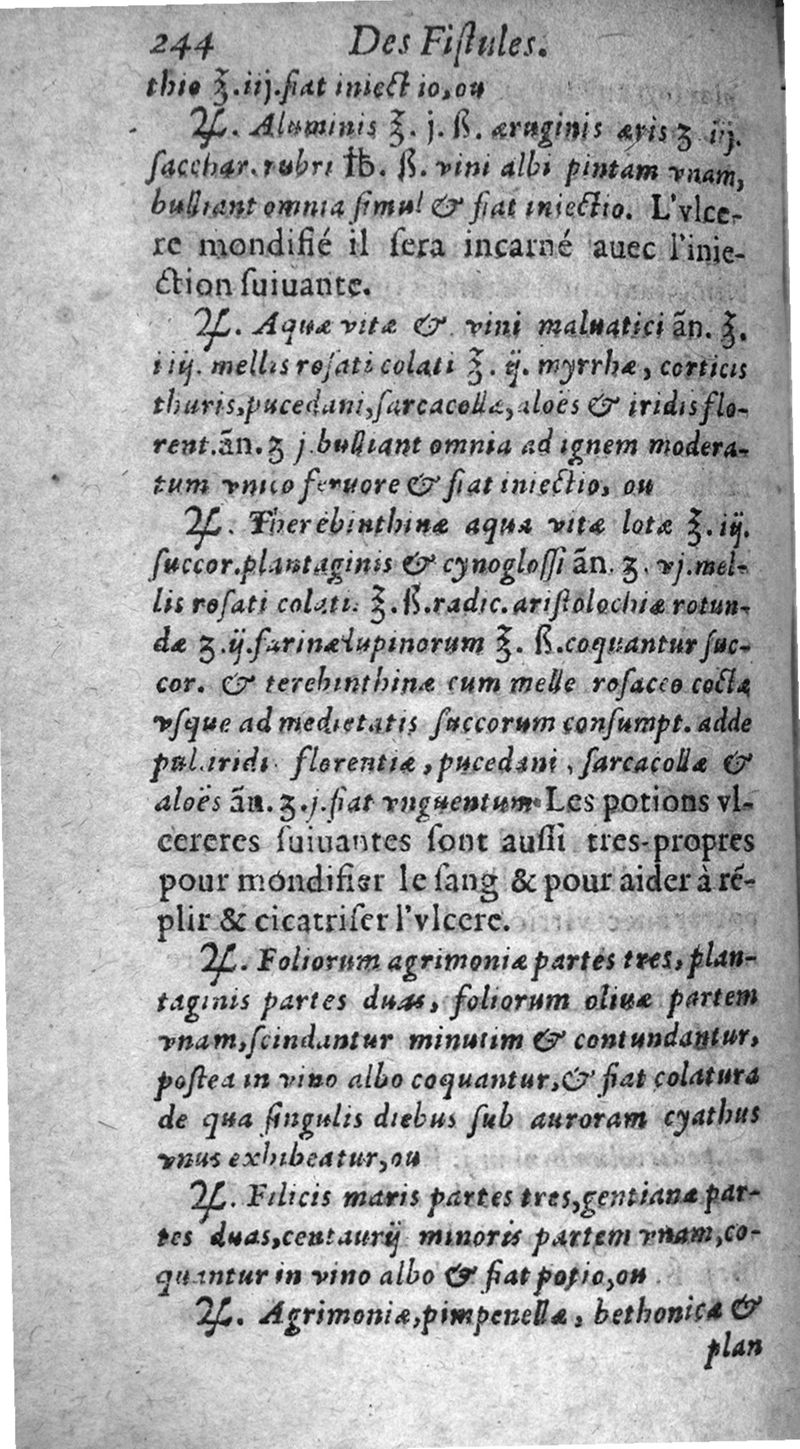 244 Des Fiſtules.
thio ℥.iij.fiat iniectio,ou
♃. Aluminis ℥. j. ß. æruginis æris ʒ iij.
ſacchar. rubri ℔. ß. vini albi pintam vnam,
bulliant omnia ſimul & fiat iniectio. L'vlce-
re mondifié il ſera incarné auec l'inie-
ction ſuiuante.
♃. Aquæ vitæ & vini maluatici ãn. ℥.
iiij. mellis roſati colati ℥. ij. myrrhæ, corticis
thuris,pucedani,ſarcacollæ,aloës & iridis flo-
rent.ãn.ʒ j.bulliant omnia ad ignem modera-
tum vnico feruore & fiat iniectio, ou
♃. Therebinthinæ aqua vitæ lotæ ℥.iij.
ſuccor.plantaginis & cynogloſſi ãn. ʒ. vj.mel-
lis roſati colati. ℥.ß.radic.ariſtolochiæ rotun-
dæ ʒ.ij.farinæ lupinorum ℥. ß.coquantur ſuc-
cor. & terebinthinæ cum melle roſaceo cocta
vſque ad medietatis ſuccorum conſumpt. adde
pul.iridi florentiæ, pucedani, ſarcacollæ &
aloës ãn. ʒ.j.fiat vnguentum Les potions vl-
cereres ſuiuantes ſont auſſi tres-propres
pour mondifier le ſang & pour aider à ré-
plir & cicatriſer l'vlcere.
♃. Foliorum agrimoniæ partes tres, plan-
taginis partes duas, foliorum oliuæ partem
vnam,ſcindantur minutim & contundantur,
poſtea in vino albo coquantur,& fiat colatura
de qua ſingulis diebus ſub auroram cyathus
vnus exhibeatur,ou
♃. Filicis maris partes tres,gentianæ par-
tes duas,centaurij minoris partem vnam,co-
quantur in vino albo & fiat potio,ou
♃. Agrimoniæ,pimpenellæ, bethonicæ &
plan